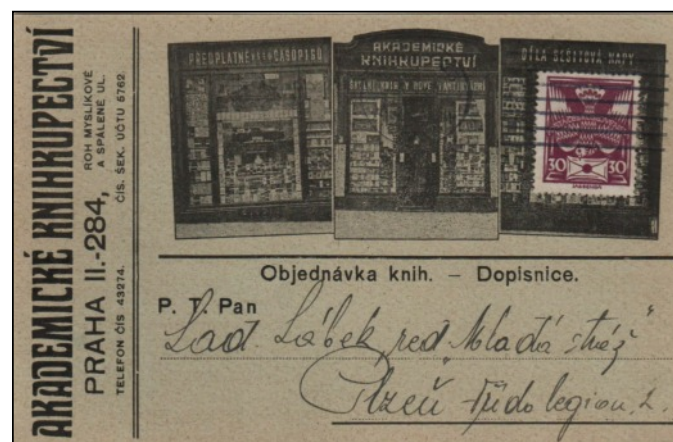 AKADEMICKÉ KNIHKUPECTVÍ
PRAHA II.-284, ROH MYSLÍKOVÉ
A SPÁLENÉ UL.
TELEFON ČÍS 43274. ČÍS. ŠEK. ÚČTU 5762.
PŘEDPLATNÉ ČASOPISŮ
AKADEMICKÉ
KNIHKUPECTVÍ
DÍLA SEŠITOVÁ MAPY
30 30
Objednávka knih. – Dopisnice.
P. T. Pan
Lad. Lábek, red. „Mladá stráž"
Plzeň